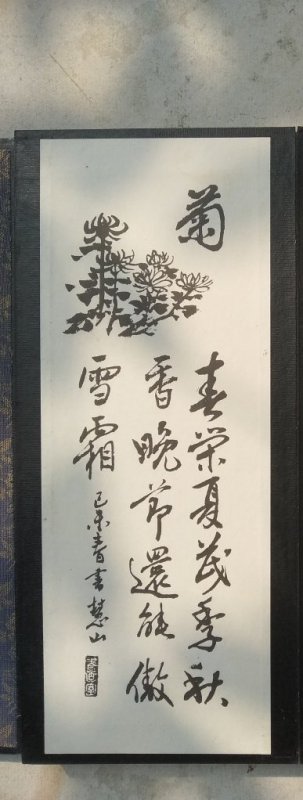 菊
春榮夏茂季秋
香晚節還能傲
雪霜
己未春書慧山